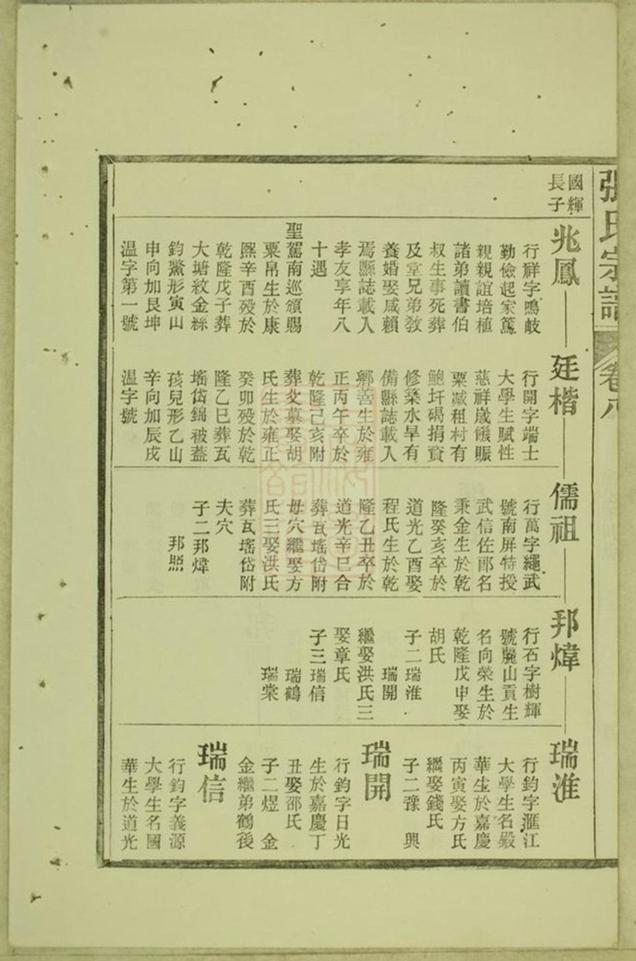 張氏宗譜
卷八
國輝
長子
兆鳳
行祥字鳴岐
勤儉起家篤
親親誼培植
諸弟讀書伯
叔生事死葬
及堂兄弟教
養婚娶咸賴
焉縣誌載入
孝友享年八
十遇
聖駕南巡頒賜
粟帛生於康
熙辛酉殁於
乾隆戊子葬
大塘紋金絲
鈞鰲形寅山
申向加艮坤
温字第一號
廷楷
行開字端士
大學生賦性
慈祥歲饑賑
粟减租村有
鮑圩碣捐資
修築水旱有
備縣誌載入
鄉善生於雍
正丙午卒於
乾隆己亥附
葬父墓娶胡
氏生於雍正
癸卯殁於乾
隆乙巳葬瓦
瑤岱錦被蓋
孩兒形乙山
辛向加辰戌
温字號
儒祖
行萬字繩武
號南屏特授
武信佐郎名
秉金生於乾
隆癸亥卒於
道光乙酉娶
程氏生於乾
隆乙丑卒於
道光辛巳合
葬瓦瑤岱附
母穴繼娶方
氏三娶洪氏
葬瓦瑤岱附
夫穴
子二邦煒
邦照
邦煒
行石字樹輝
號麗山貢生
名向榮生於
乾隆戊申娶
胡氏
子二瑞淮
瑞開
繼娶洪氏三
娶章氏
子三瑞信
瑞鶴
瑞棠
瑞淮
行鈞字滙江
大學生名嚴
華生於嘉慶
丙寅娶方氏
繼娶錢氏
子二豫 興
瑞開
行鈞字日光
生於嘉慶丁
丑娶邵氏
子二煜 金
金繼弟鶴後
瑞信
行鈞字義源
大學生名國
華生於道光